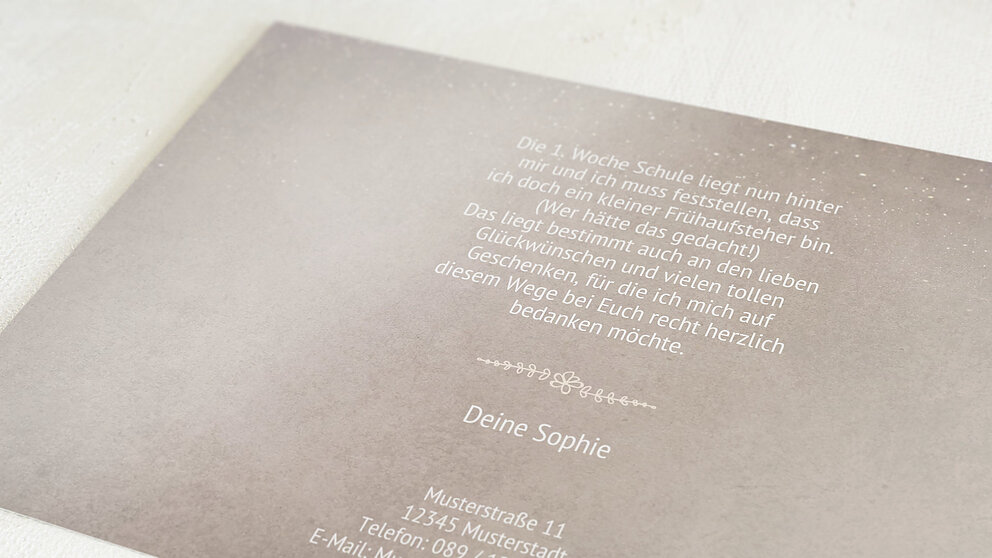 Die 1. Woche Schule liegt nun hinter
mir und ich muss feststellen, dass
ich doch ein kleiner Frühaufsteher bin.
(Wer hätte das gedacht!)
Das liegt bestimmt auch an den lieben
Glückwünschen und vielen tollen
Geschenken, für die ich mich auf
diesem Wege bei Euch recht herzlich
bedanken möchte.
Deine Sophie
Musterstraße 11
12345 Musterstadt
Telefon: 089 /
E-Mail: